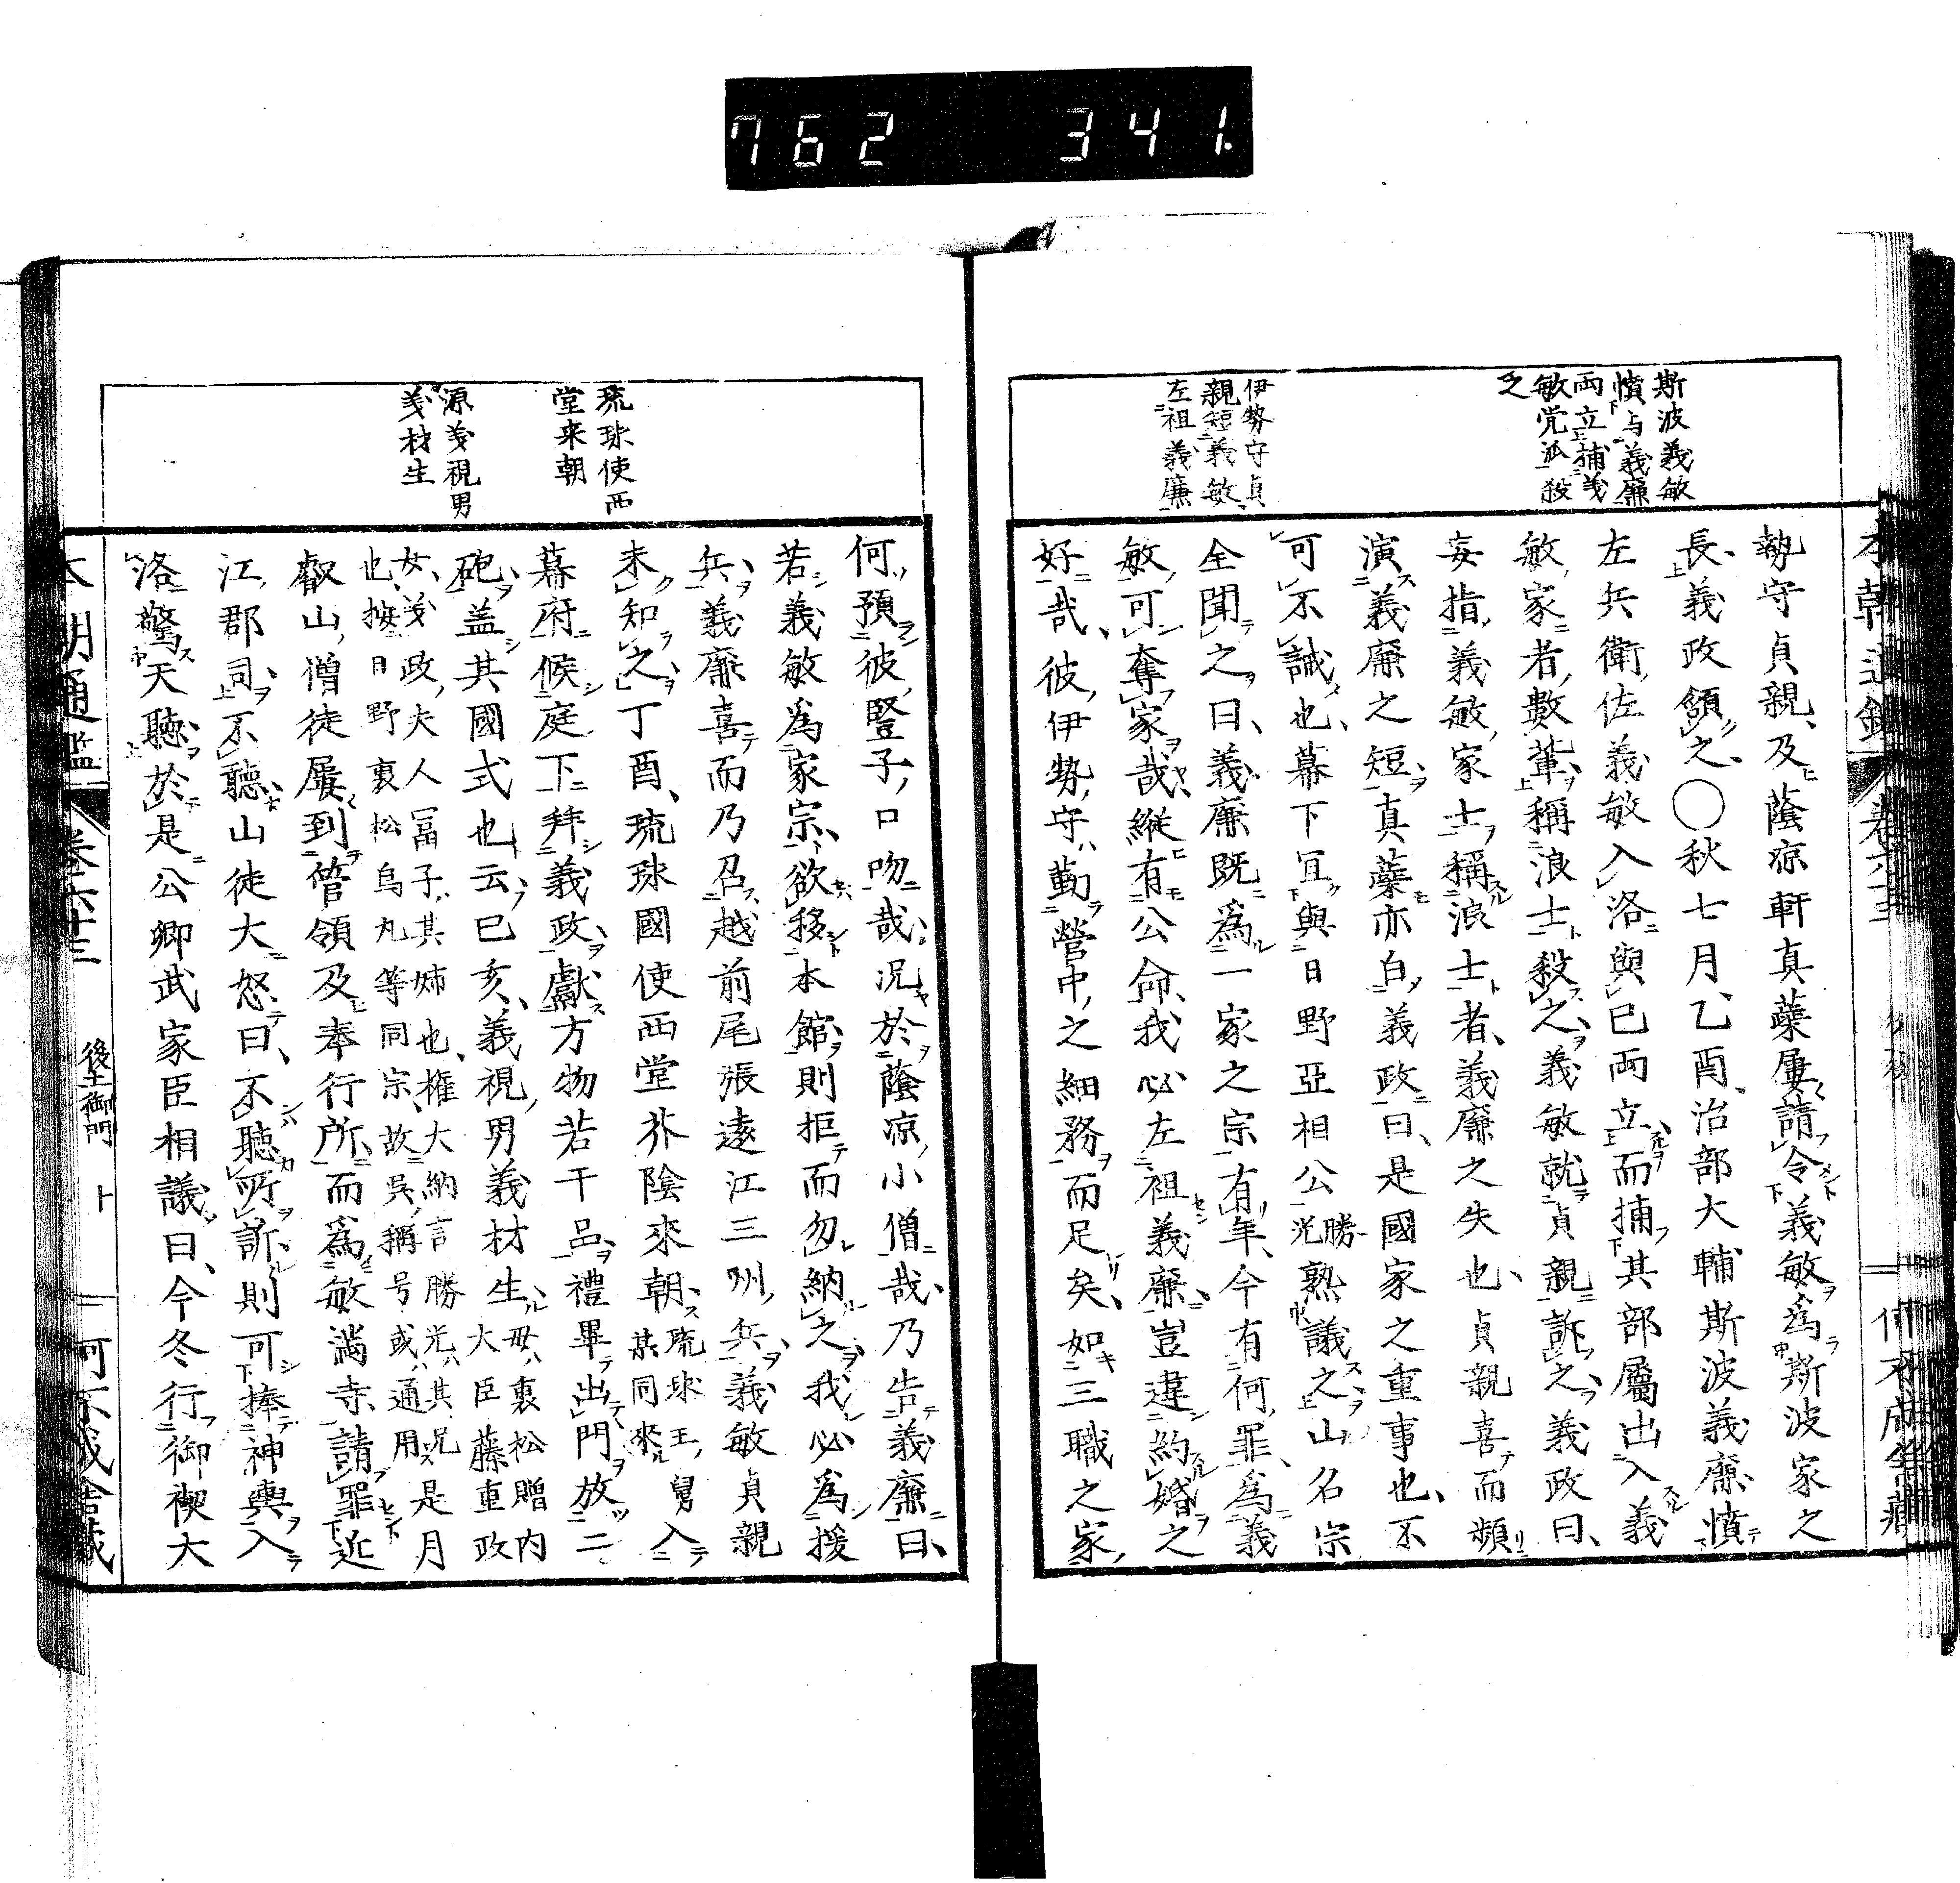 762 341.
斯波義敏
憤与義廉
両立捕義
敏党派殺
之
伊勢守貞
親短義敏
左袒義廉
執守貞親、及蔭涼軒真蘂屢請令義敏為斯波家之
長、義政頷之、○秋七月乙酉、治部大輔斯波義廉、憤
左兵衛佐義敏入洛與已両立、而捕其部屬出入義
敏家者、數輩、稱浪士殺之、義敏就貞親訴之、義政曰、
妄指義敏家士、稱浪士者、義廉之失也、貞親喜而頻
演義廉之短、真蘂亦白、義政曰、是國家之重事也、不
可不誠也、幕下冝與日野亞相公勝光熟議之、山名宗
全聞之、曰、義廉既為一家之宗、有年、今有何罪、為義
敏可奪家哉、縦有公命、我必左袒義廉、豈違約婚之
好哉、彼伊勢守、勤營中之細務而足矣、如三職之家、
琉球使西
堂来朝
源義視男
義材生
何預彼豎子口吻哉、況於蔭凉小僧哉、乃告義廉曰、
若義敏為家宗、欲移本館、則拒而勿納之、我必為援
兵、義廉喜而乃召越前尾張遠江三州兵、義敏貞親
未知之、丁酉、琉球國使西堂芥陰來朝、琉球王舅某同來入
幕府候庭下、拜義政、獻方物若干品、禮畢出門放二
砲、盖其國式也云、已亥、義視男義材生、母裏松贈内大臣藤重政
女、義政夫人冨子其姉也、權大納言勝光其兄
也、按日野裏松烏丸等同宗、故呉稱号或通用、是月
叡山僧徒屢到管領及奉行所、而為敏満寺請罪近
江郡司、不聽、山徒大怒曰、不聽所訴、則可捧神輿入
洛驚天聽、於是公卿武家臣相議曰、今冬行御禊大
本朝通鑑 卷六十三 後土御門 何不成舎蔵